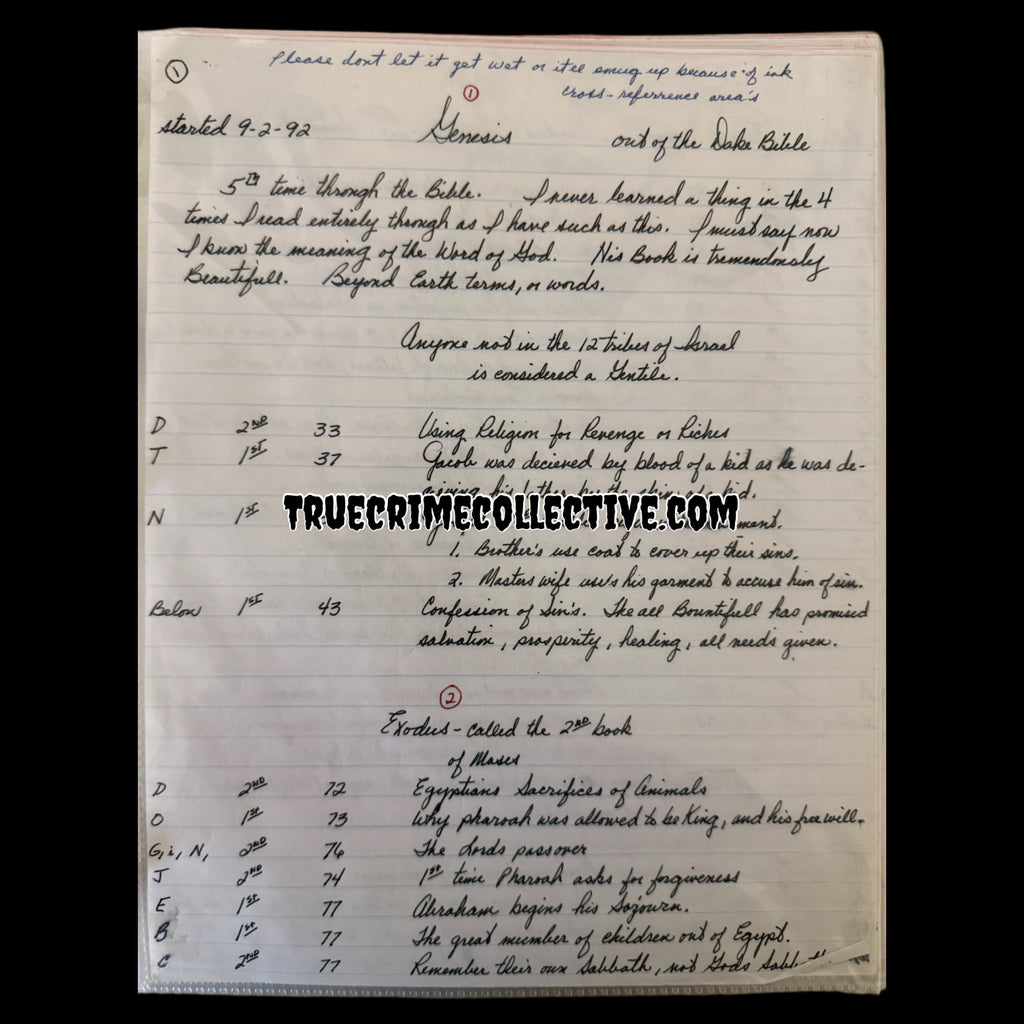 ① Please dont let it get wet or itll smug up because of ink
cross-referrence area's
①
started 9-2-92 Genesis out of the Dake Bible
5th time through the Bible. I never learned a thing in the 4
times I read entirely through as I have such as this. I must say now
I know the meaning of the Word of God. His Book is tremendously
Beautifull. Beyond Earth terms, or words.
Anyone not in the 12 tribes of Israel
is considered a Gentile.
D 2ND 33 Using Religion for Revenge or Riches
T 1ST 37 Jacob was decieved by blood of a kid as he was de-
his father by the skin of a kid.
N 1ST
TRUECRIMECOLLECTIVE.COM
1. Brother's use coat to cover up their sins.
2. Masters wife use's his garment to accuse him of sin.
Below 1ST 43 Confession of Sin's. The all Bountifull has promised
salvation, prosperity, healing, all needs given.
②
Exodus - called the 2ND book
of Moses
D 2ND 72 Egyptians Sacrifices of Animals
O 1st 73 Why pharoah was allowed to be King, and his free will.
G, i, N, 2ND 76 The Lords passover
J 2ND 74 1st time Pharoah asks for forgiveness
E 1st 77 Abraham begins his Sojourn.
B 1st 77 The great number of children out of Egypt.
C 2ND 77 Remember their own Sabbath, not Gods